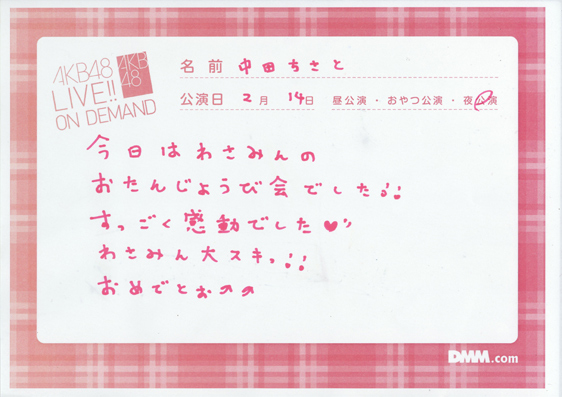 AKB48
LIVE!!
ON DEMAND
AKB
48
名前 中田ちさと
公演日 2月 14日 昼公演・おやつ公演・夜公演
今日はわさみんの
おたんじょうび会でしたっ!!
すっごく感動でした♥
わさみん大スキっ!!
おめでとぉのの
DMM.com